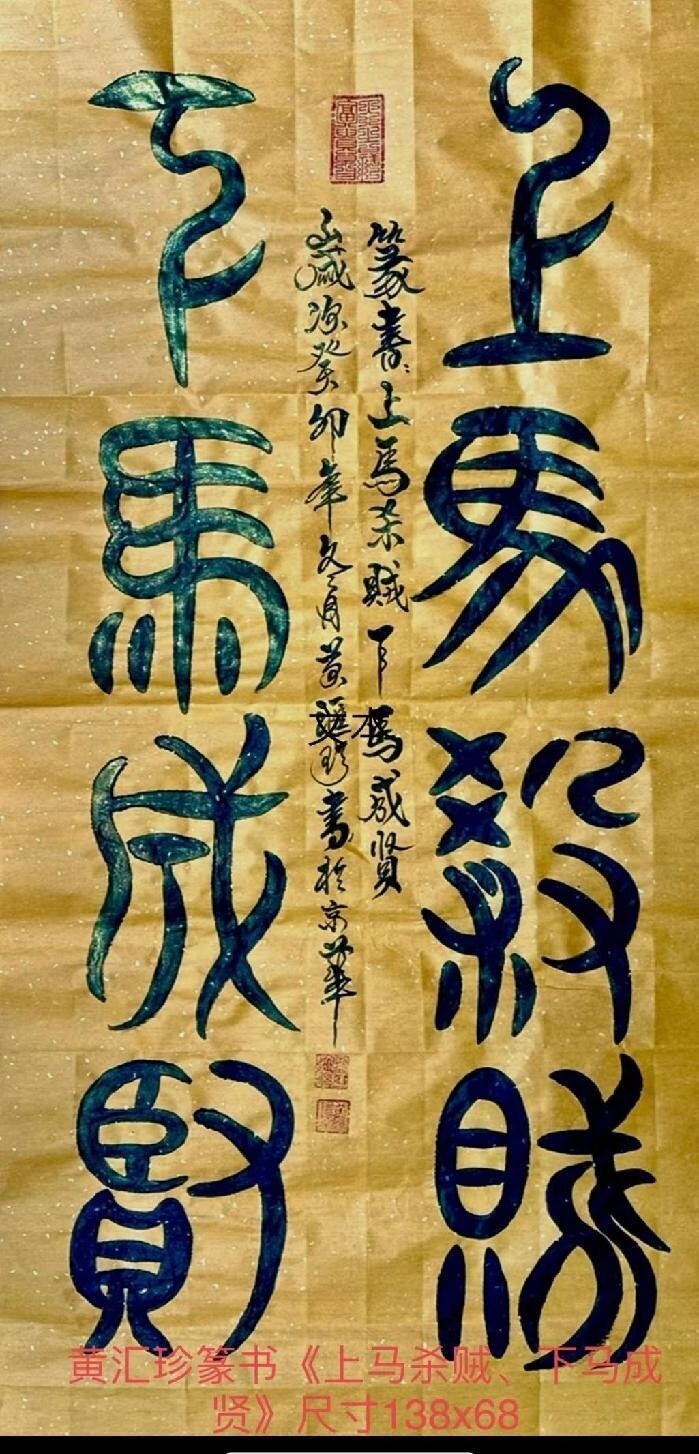 上馬殺賊
篆書:上馬杀賊下馬成賢
歲次癸卯年冬月黄匯珍書於京華
下馬成賢
黄汇珍篆书《上马杀贼、下马成
贤》尺寸138x68